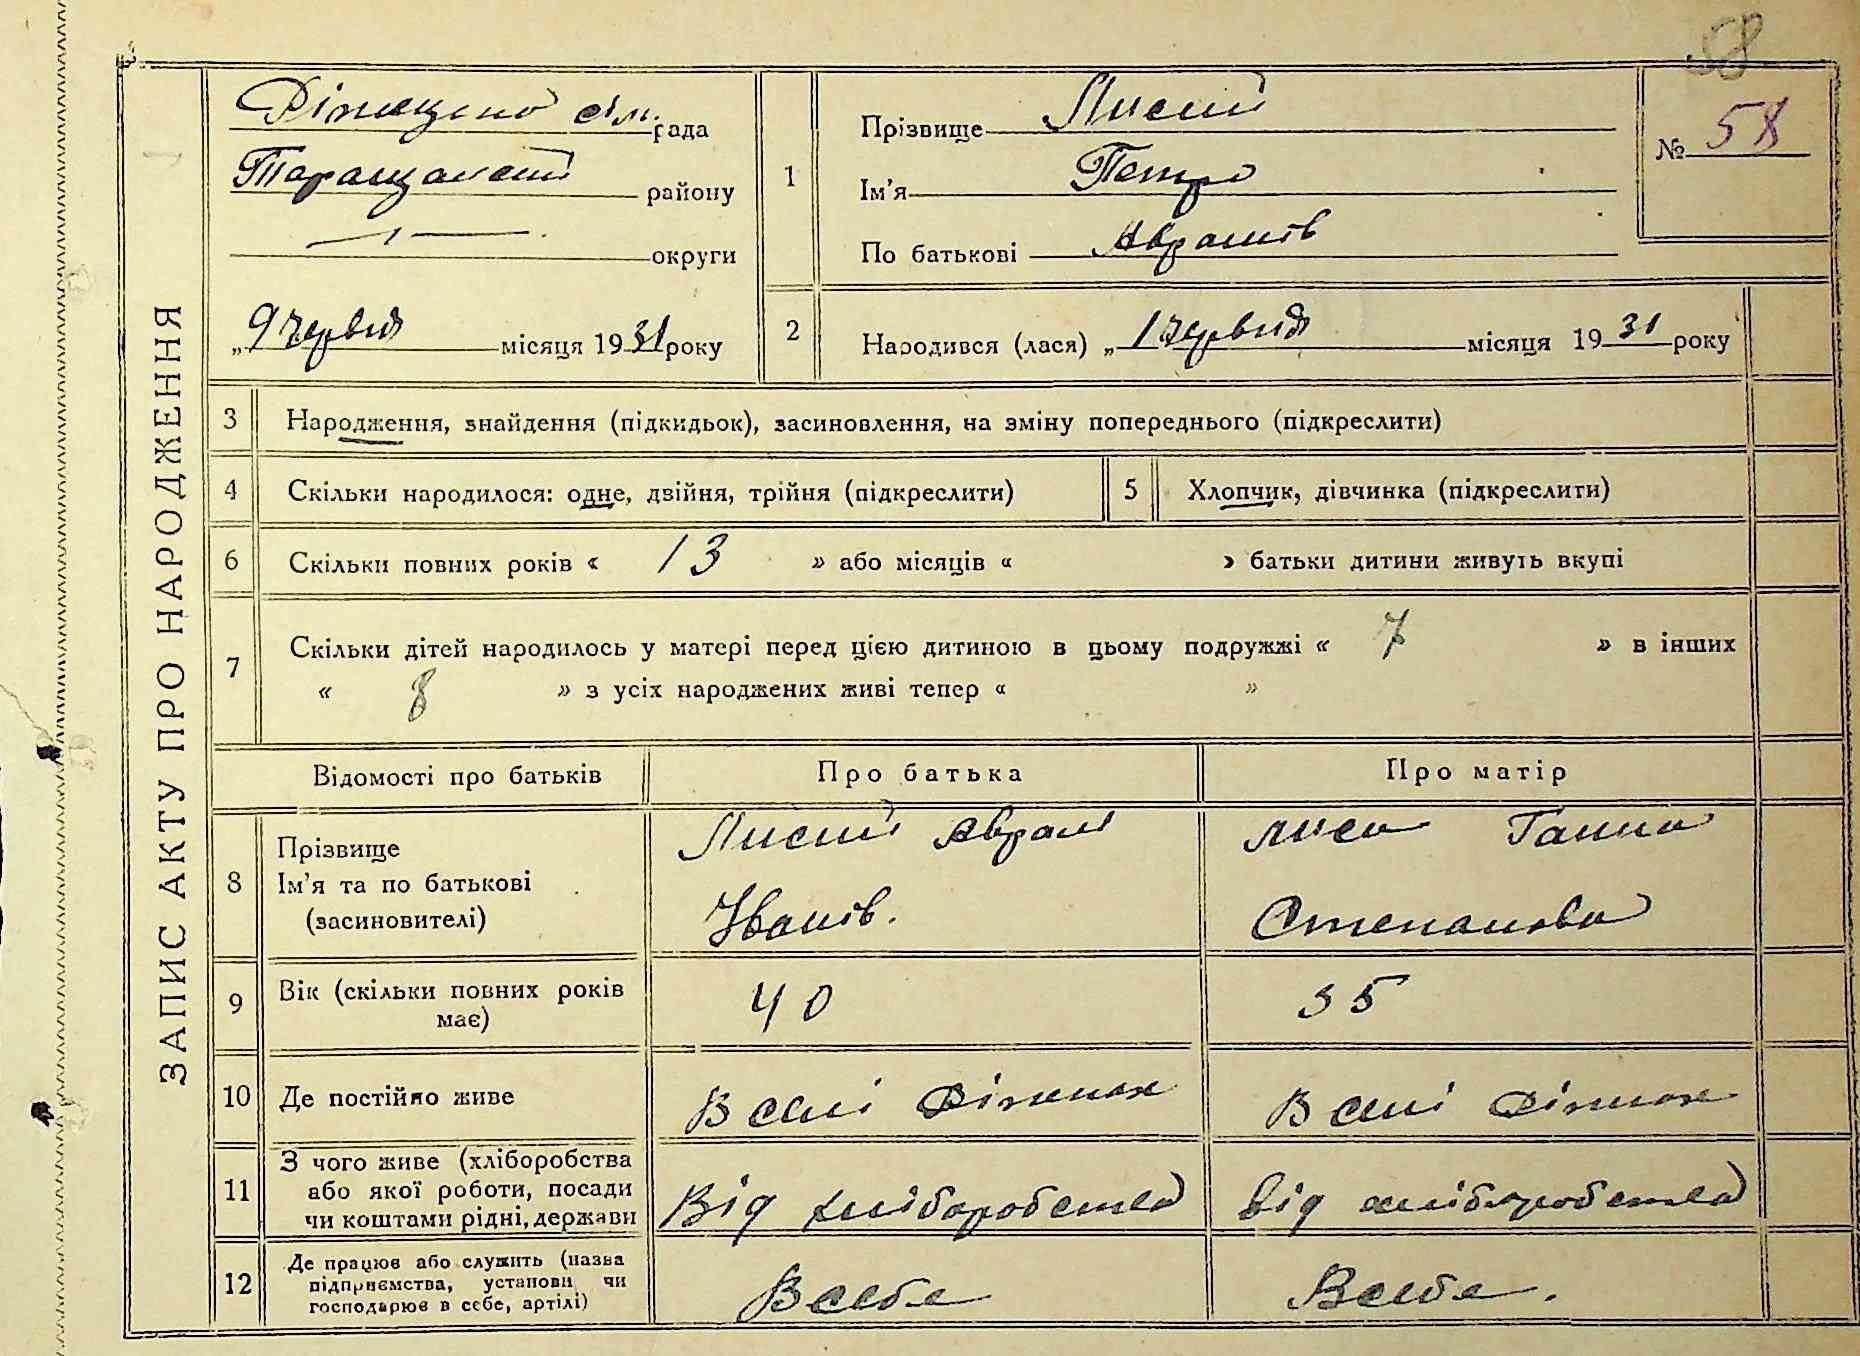 58
ЗАПИС АКТУ ПРО НАРОДЖЕННЯ
сіл. рада
Таращанський району
округи
„9 червня місяця 1931 року
1
Прізвище Лисий
Ім'я Петро
По батькові Аврамів
№ 58
2
Народився (лася) „1 червня місяця 1931 року
3 Народження, знайдення (підкидьок), засиновлення, на зміну попереднього (підкреслити)
4 Скільки народилося: одне, двійня, трійня (підкреслити)
5 Хлопчик, дівчинка (підкреслити)
6 Скільки повних років « 13 » або місяців « » батьки дитини живуть вкупі
7 Скільки дітей народилось у матері перед цією дитиною в цьому подружжі « 7 » в інших
« 8 » з усіх народжених живі тепер « »
Відомості про батьків Про батька Про матір
8 Прізвище
Ім'я та по батькові
(засиновителі)
Лисий Аврам
Іванів.
Лиса Ганна
Степанова
9 Вік (скільки повних років
має)
40 35
10 Де постійно живе В селі В селі
11 З чого живе (хліборобства
або якої роботи, посади
чи коштами рідні, держави
Від хліборобства від хліборобства
12 Де працює або служить (назва
підприємства, установи чи
господарює в себе, артілі)
В себе В себе.